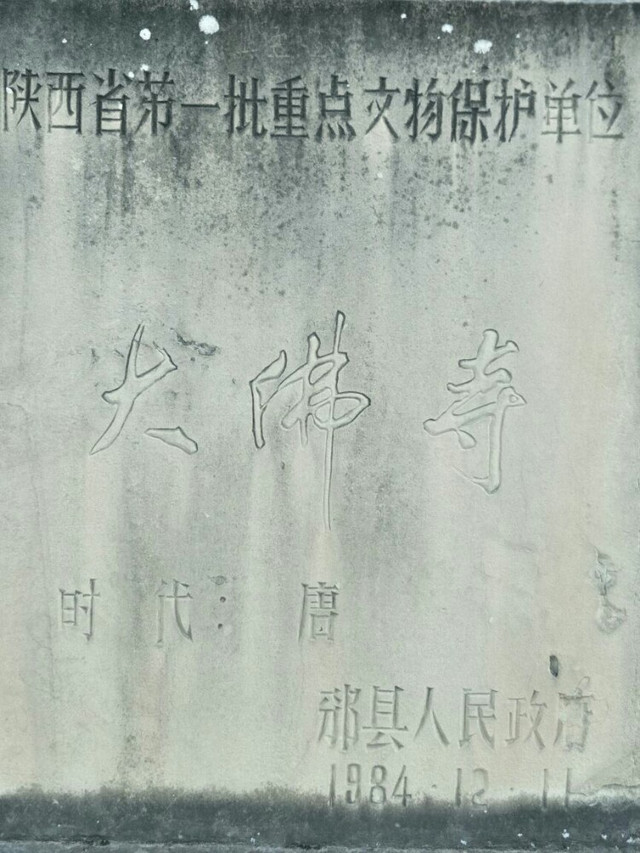 陕西省第一批重点文物保护单位
大佛寺
时代：唐
邠县人民政府
1984.12.11